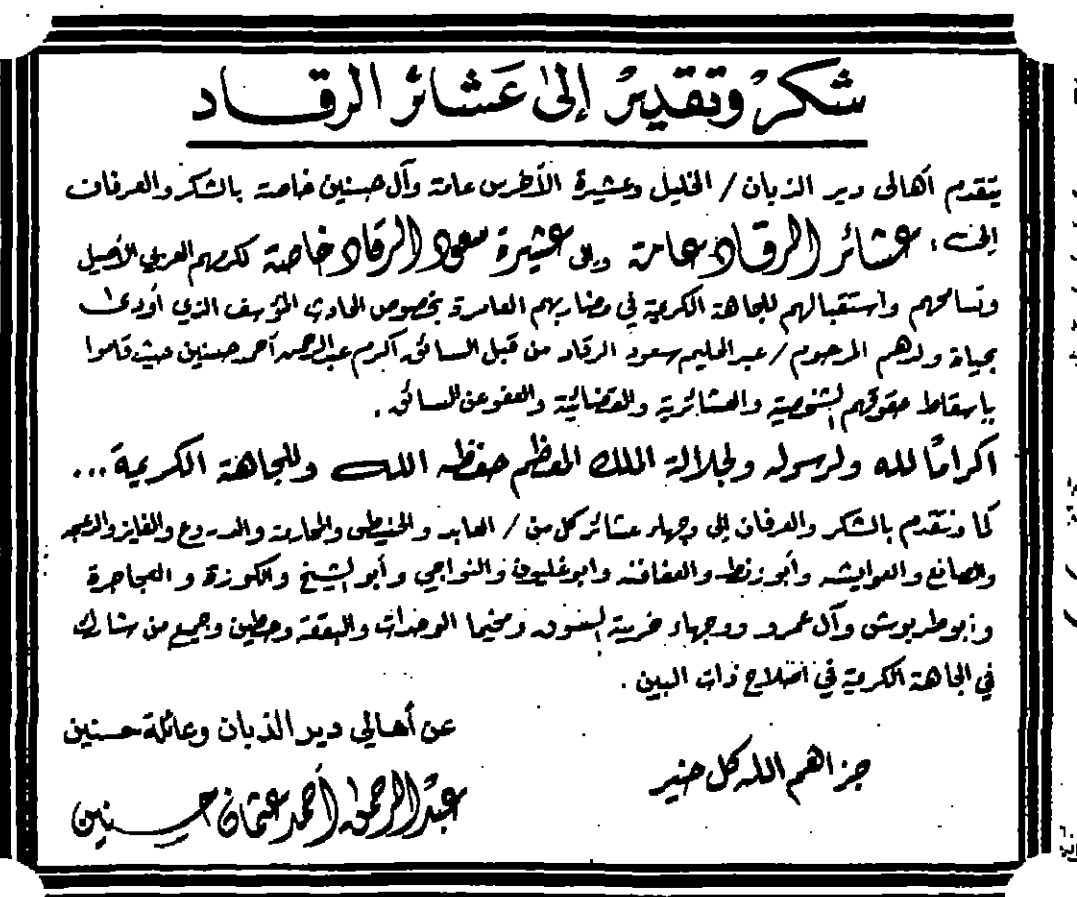 شكر وتقدير إلى عشائر الرقاد
يتقدم أهالي دير الذبان / الخليل وعشيرة الأطرش عامة وآل حسنين خاصة بالشكر والعرفان
إلى: عشائر الرقاد عامة وإلى عشيرة سعود الرقاد خاصة لكرمهم العربي الأصيل
وتسامحهم واستقبالهم للجاهة الكريمة في مضاربهم العامرة بخصوص الحادث المؤسف الذي أودى
بحياة ولدهم المرحوم / عبد الحليم سعود الرقاد من قبل السائق أكرم عبد الرحمن أحمد حسنين حيث قاموا
باسقاط حقوقهم الشخصية والعشائرية والقضائية والعفو عن السائق.
اكرامًا لله ولرسوله ولجلالة الملك المعظم حفظه الله وللجاهة الكريمة...
كما ونتقدم بالشكر والعرفان إلى وجهاء عشائر كل من / العابد والحنيطي والمحارمة والدروع والفايز
والصانع والعوايشه وأبو زنط والعفافنه وابو غليون والنواجي وأبو الشيخ والكوزة والعجاجرة
وأبو طربوش وآل عمرو ووجهاء خربة السوق ومخيما الوحدات والبقعة وحطين وجميع من شارك
في الجاهة الكريمة في اصلاح ذات البين.
جزاهم الله كل خير
عن أهالي دير الذبان وعائلة حسنين
عبد الرحمن أحمد عثمان حسنين